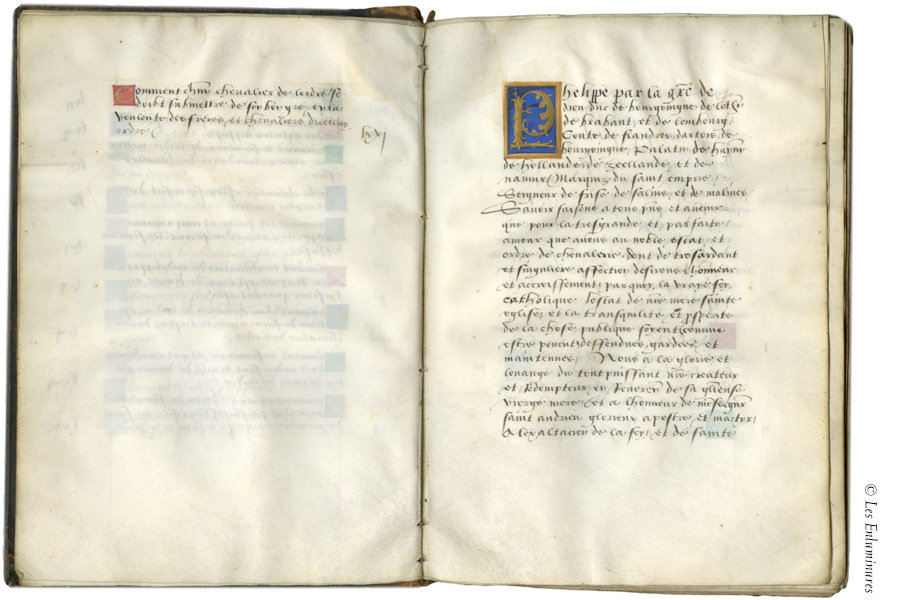 Comment chun chevalier de lordre se
doibt submettre de ses et en la
voulente des freres, et chevaliers diceluy
ordre
lxvj
Phelippe par la gre de
dieu duc de bourgoingne de Lothr
de brabant et de Lembourg,
Conte de flandres, dartois, de
bourgoingne, Palatin de haynn
de hollande, de zeellande, et de
namur, Marquiz du saint empire
Seigneur de frise de salins, et de malines,
Savoir faisons a tous pns, et avenir
que pour la tresgrande et parfaite
amour que avons au noble estat et
ordre de chevalerie, dont de tresardant
et singuliere affection desirons lhonneur
et accroissement, par quoy, la vraye foy
catholique, lestat de nre mere sainte
eglise, et la tranquilite, et psperite
de la chose publique soient comme
estre peuent, deffendues, gardees, et
maintenues, Nous a la gloire et
louange du tout puissant nre createur
et Redempteur en Reveren de sa glieuse
vierge mere, et a lhonneur de monseignr
saint andrieu glorieux apostre et martyr,
A lexaltacion de la foy, et de sainte
© Les Enluminures